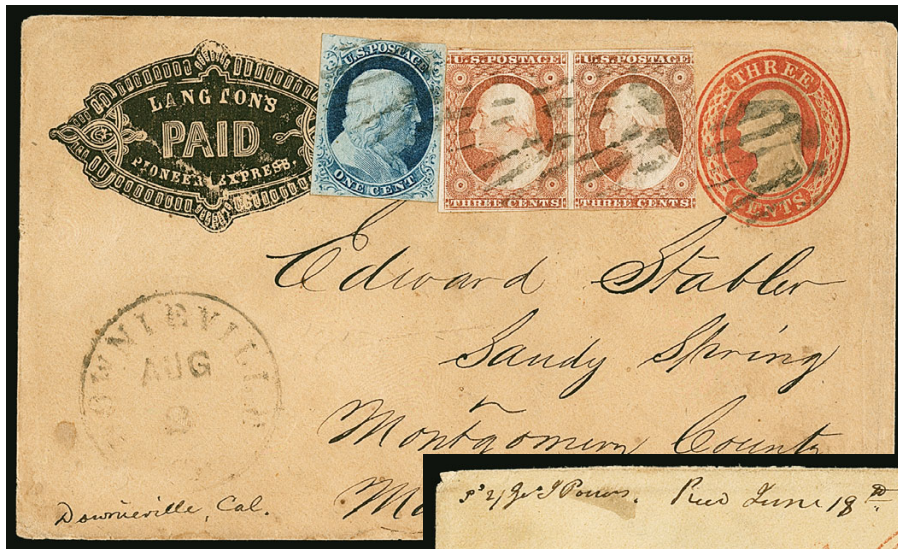 LANGTON'S
PAID
PIONEER EXPRESS.
U.S. POSTAGE
ONE CENT
U.S. POSTAGE
THREE CENTS
U.S. POSTAGE
THREE CENTS
THREE
CENTS
Edward Stabler
Sandy Spring
Montgomery County
DOWNIEVILLE
AUG
2
Downieville, Cal.
Recd June 18